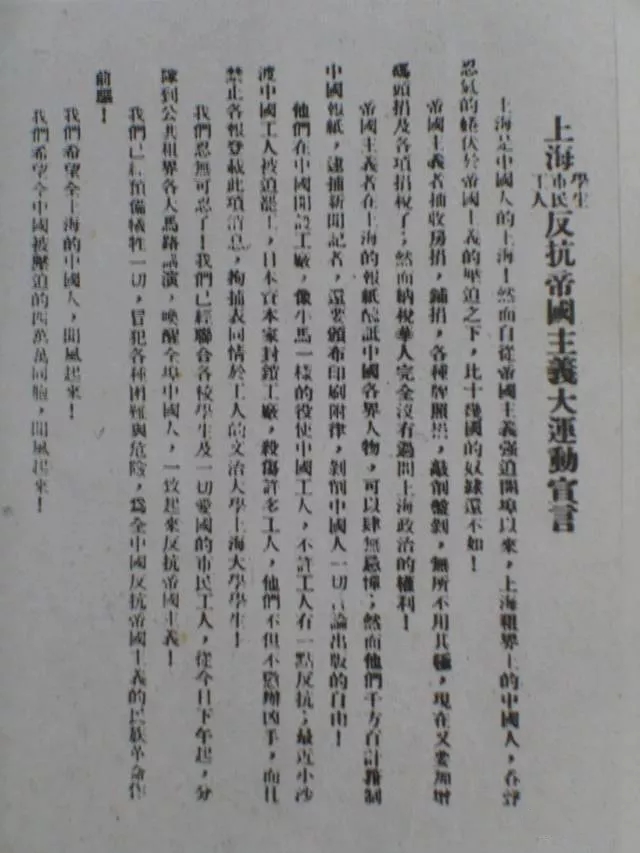 上海學生市民工人反抗帝國主義大運動宣言
上海是中國人的上海！然而自從帝國主義強迫開埠以來，上海租界上的中國人，吞聲
忍氣的蜷伏於帝國主義的壓迫之下，比亡幾國的奴隸還不如！
帝國主義者抽收房捐，鋪捐，各種牌照捐，敲削盤剝，無所不用其極，現在又要加增
碼頭捐及各項捐稅了；然而納稅華人完全沒有過問上海政治的權利！
帝國主義者在上海的報紙醜詆中國各界人物，可以肆無忌憚；然而他們千方百計箝制
中國報紙，逮捕新聞記者，還要頒布印刷附律，剝削中國人一切言論出版的自由！
他們在中國開設工廠，像牛馬一樣的役使中國工人，不許工人有一點反抗；最近小沙
渡中國工人被迫罷工，日本資本家封鎖工廠，殺傷許多工人，他們不但不懲辦凶手，而且
禁止各報登載此項消息，拘捕表同情於工人的文治大學上海大學學生！
我們忍無可忍了！我們已經聯合各校學生及一切愛國的市民工人，從今日下午起，分
隊到公共租界各大馬路講演，喚醒全埠中國人，一致起來反抗帝國主義！
我們已經預備犧牲一切，冒犯各種困難與危險，為全中國反抗帝國主義的民族革命作
前驅！
我們希望全上海的中國人，聞風起來！
我們希望全中國被壓迫的四萬萬同胞，聞風起來！